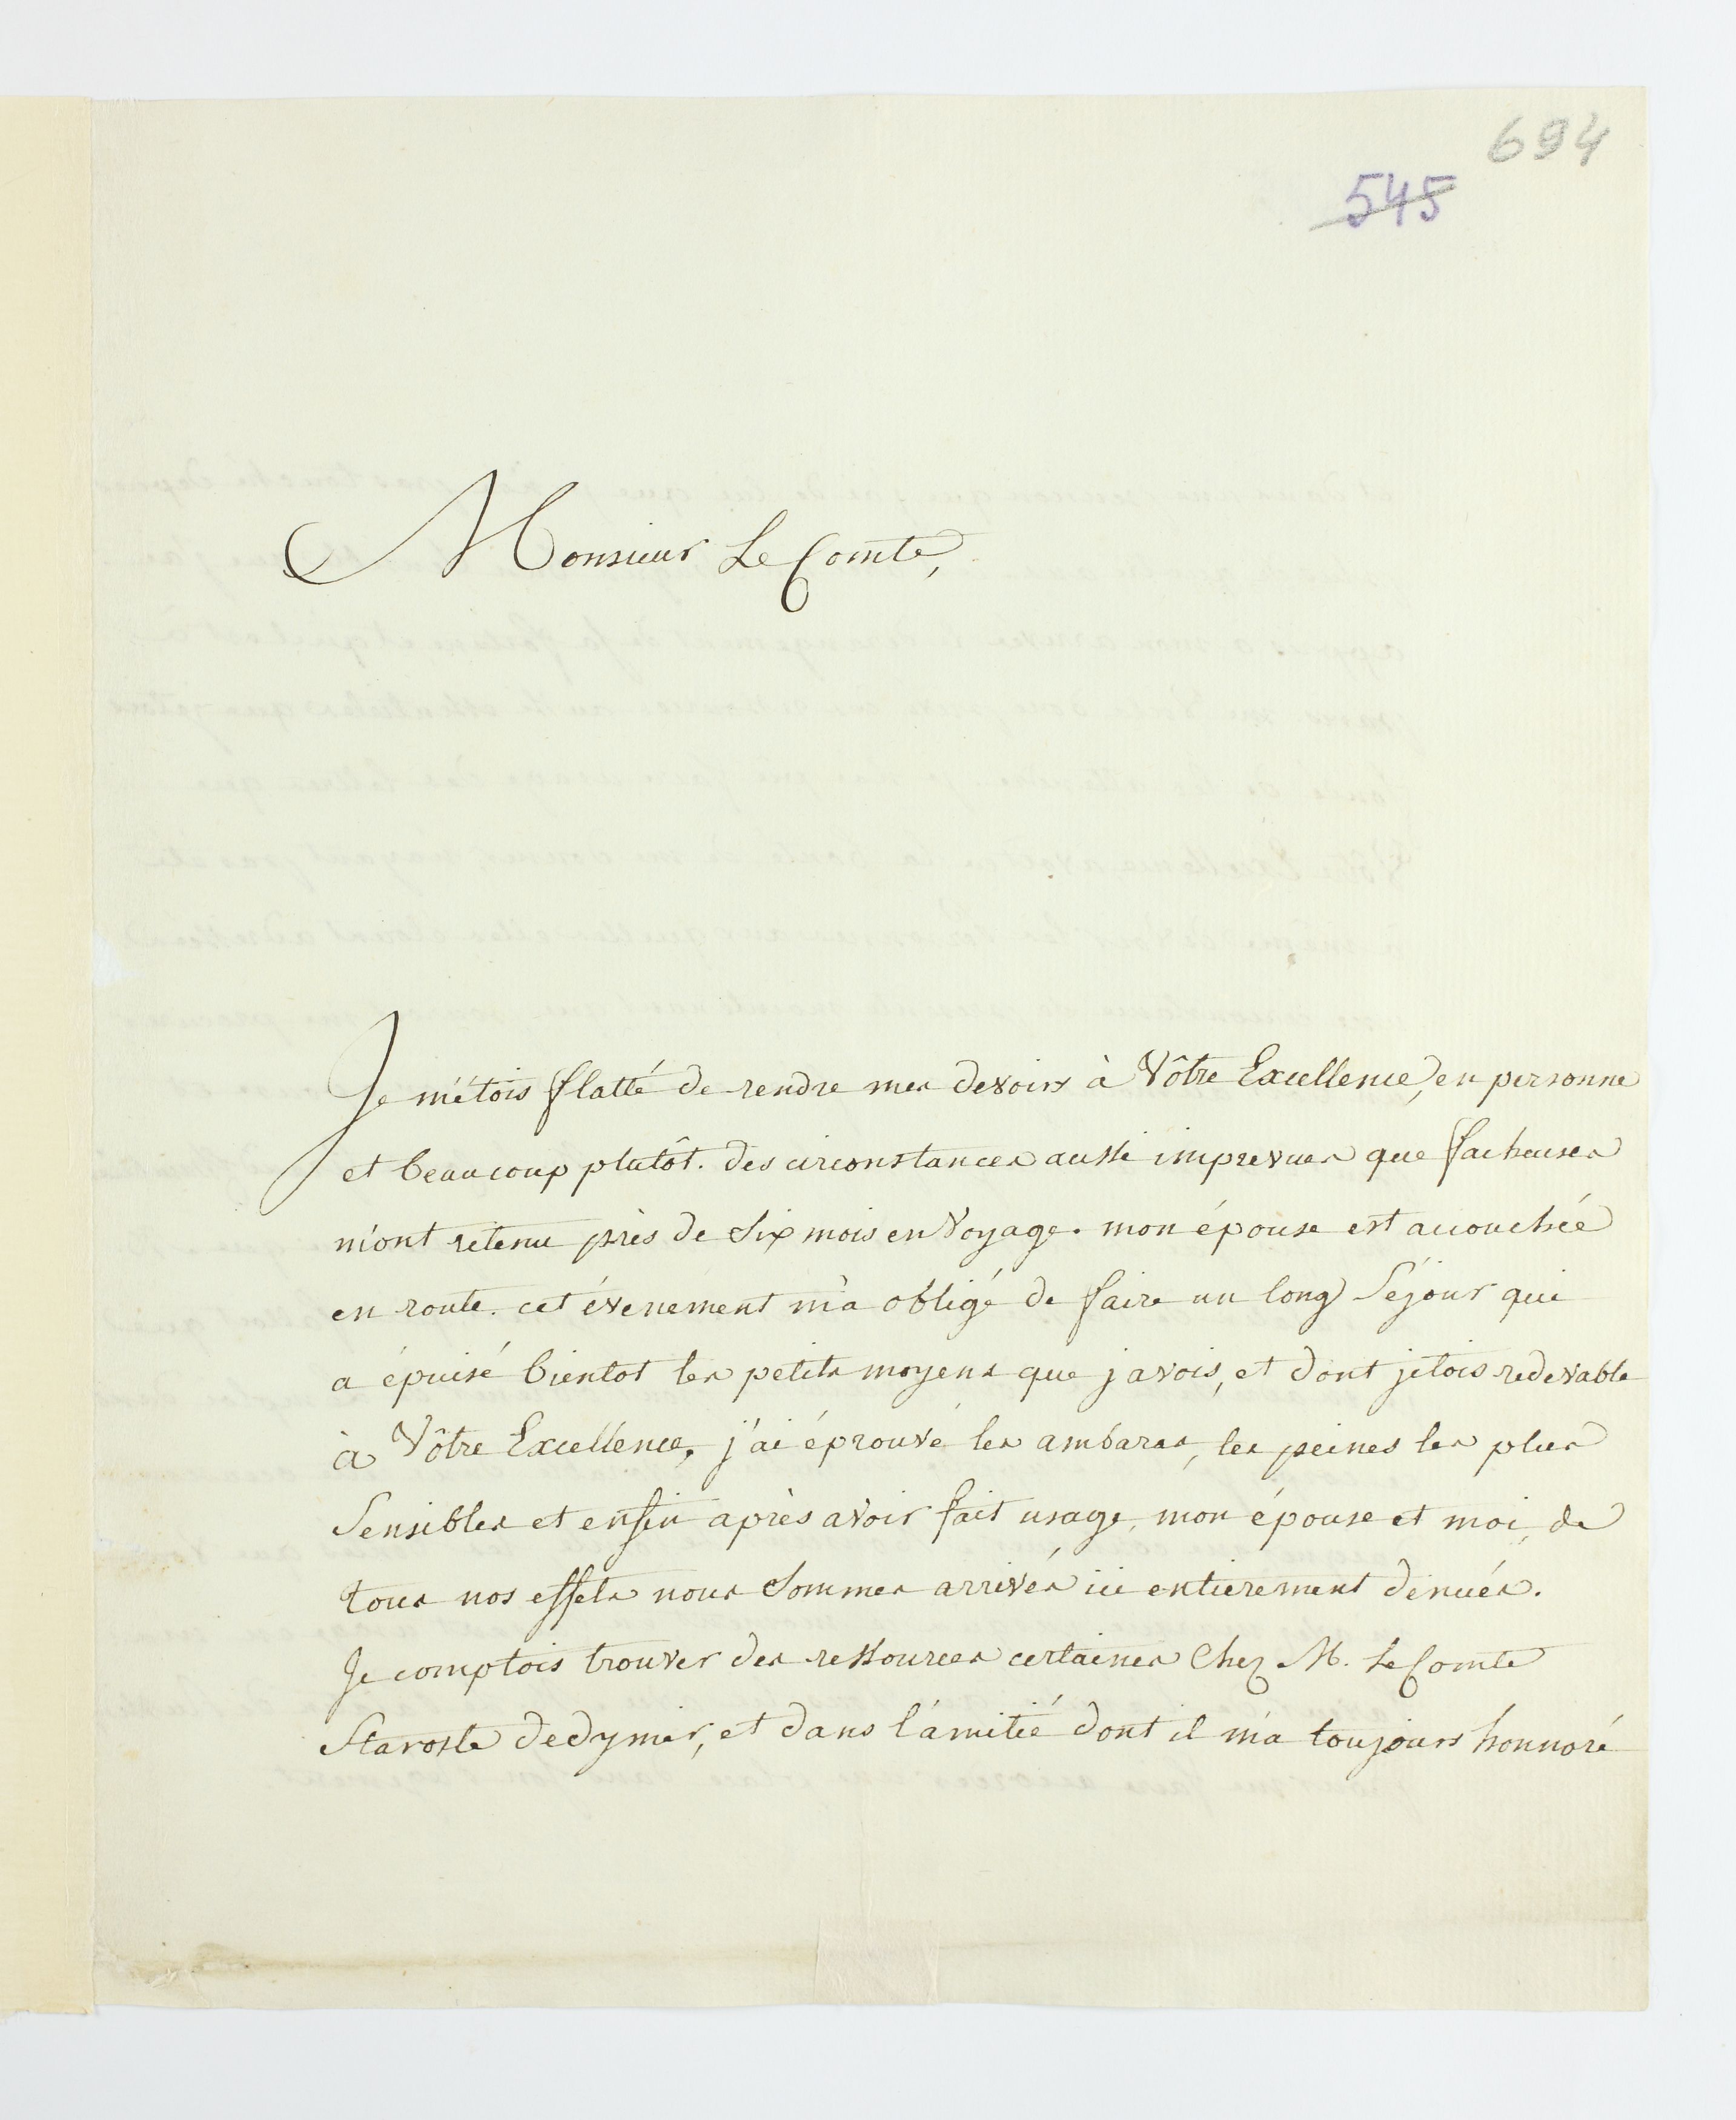 694
545
Monsieur Le Comte,
Je m'étois flatté de rendre mes devoirs à Vôtre Excellence, en personne
et beaucoup plutôt. des circonstances aussi imprevues que facheuses
m'ont retenu près de Six mois en Voyage. mon épouse est accouchée
en route. cet évenement m'a obligé de faire un long Séjour qui
a épuisé bientot les petits moyens que j'avois, et dont j'etois redevable
à Vôtre Excellence, j'ai éprouvé les ambaras, les peines les plus
Sensibles et enfin après avoir fait usage, mon épouse et moi, de
tous nos effets nous Sommes arrivés ici entierement dénués.
Je comptois trouver des ressources certaines Chez M. Le Comte
Staroste Dedymir, et dans l'amitié dont il m'a toujours honnoré